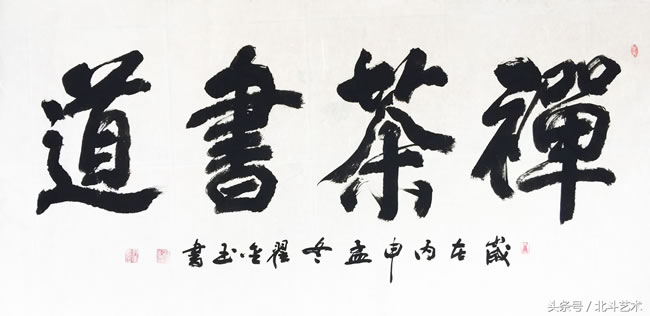 禪茶書道
歲在丙申孟冬翟金玉書
头条号 / 北斗艺术